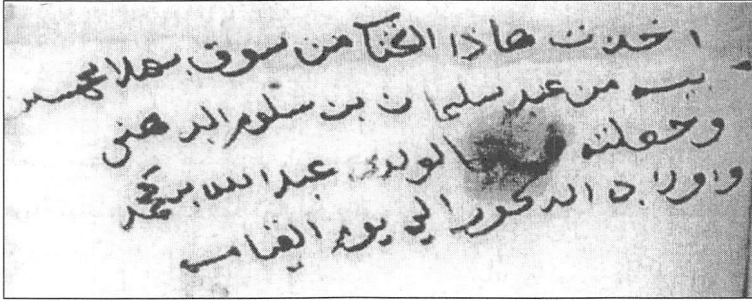 اخذت هاذا الكتاب من سوق بهلا بخمسة
بيسة من عبد سليمان بن سلوم الدهني
وجعلته لولدي عبد الله بن محمد
واولاده الدكور الي يوم القيامه